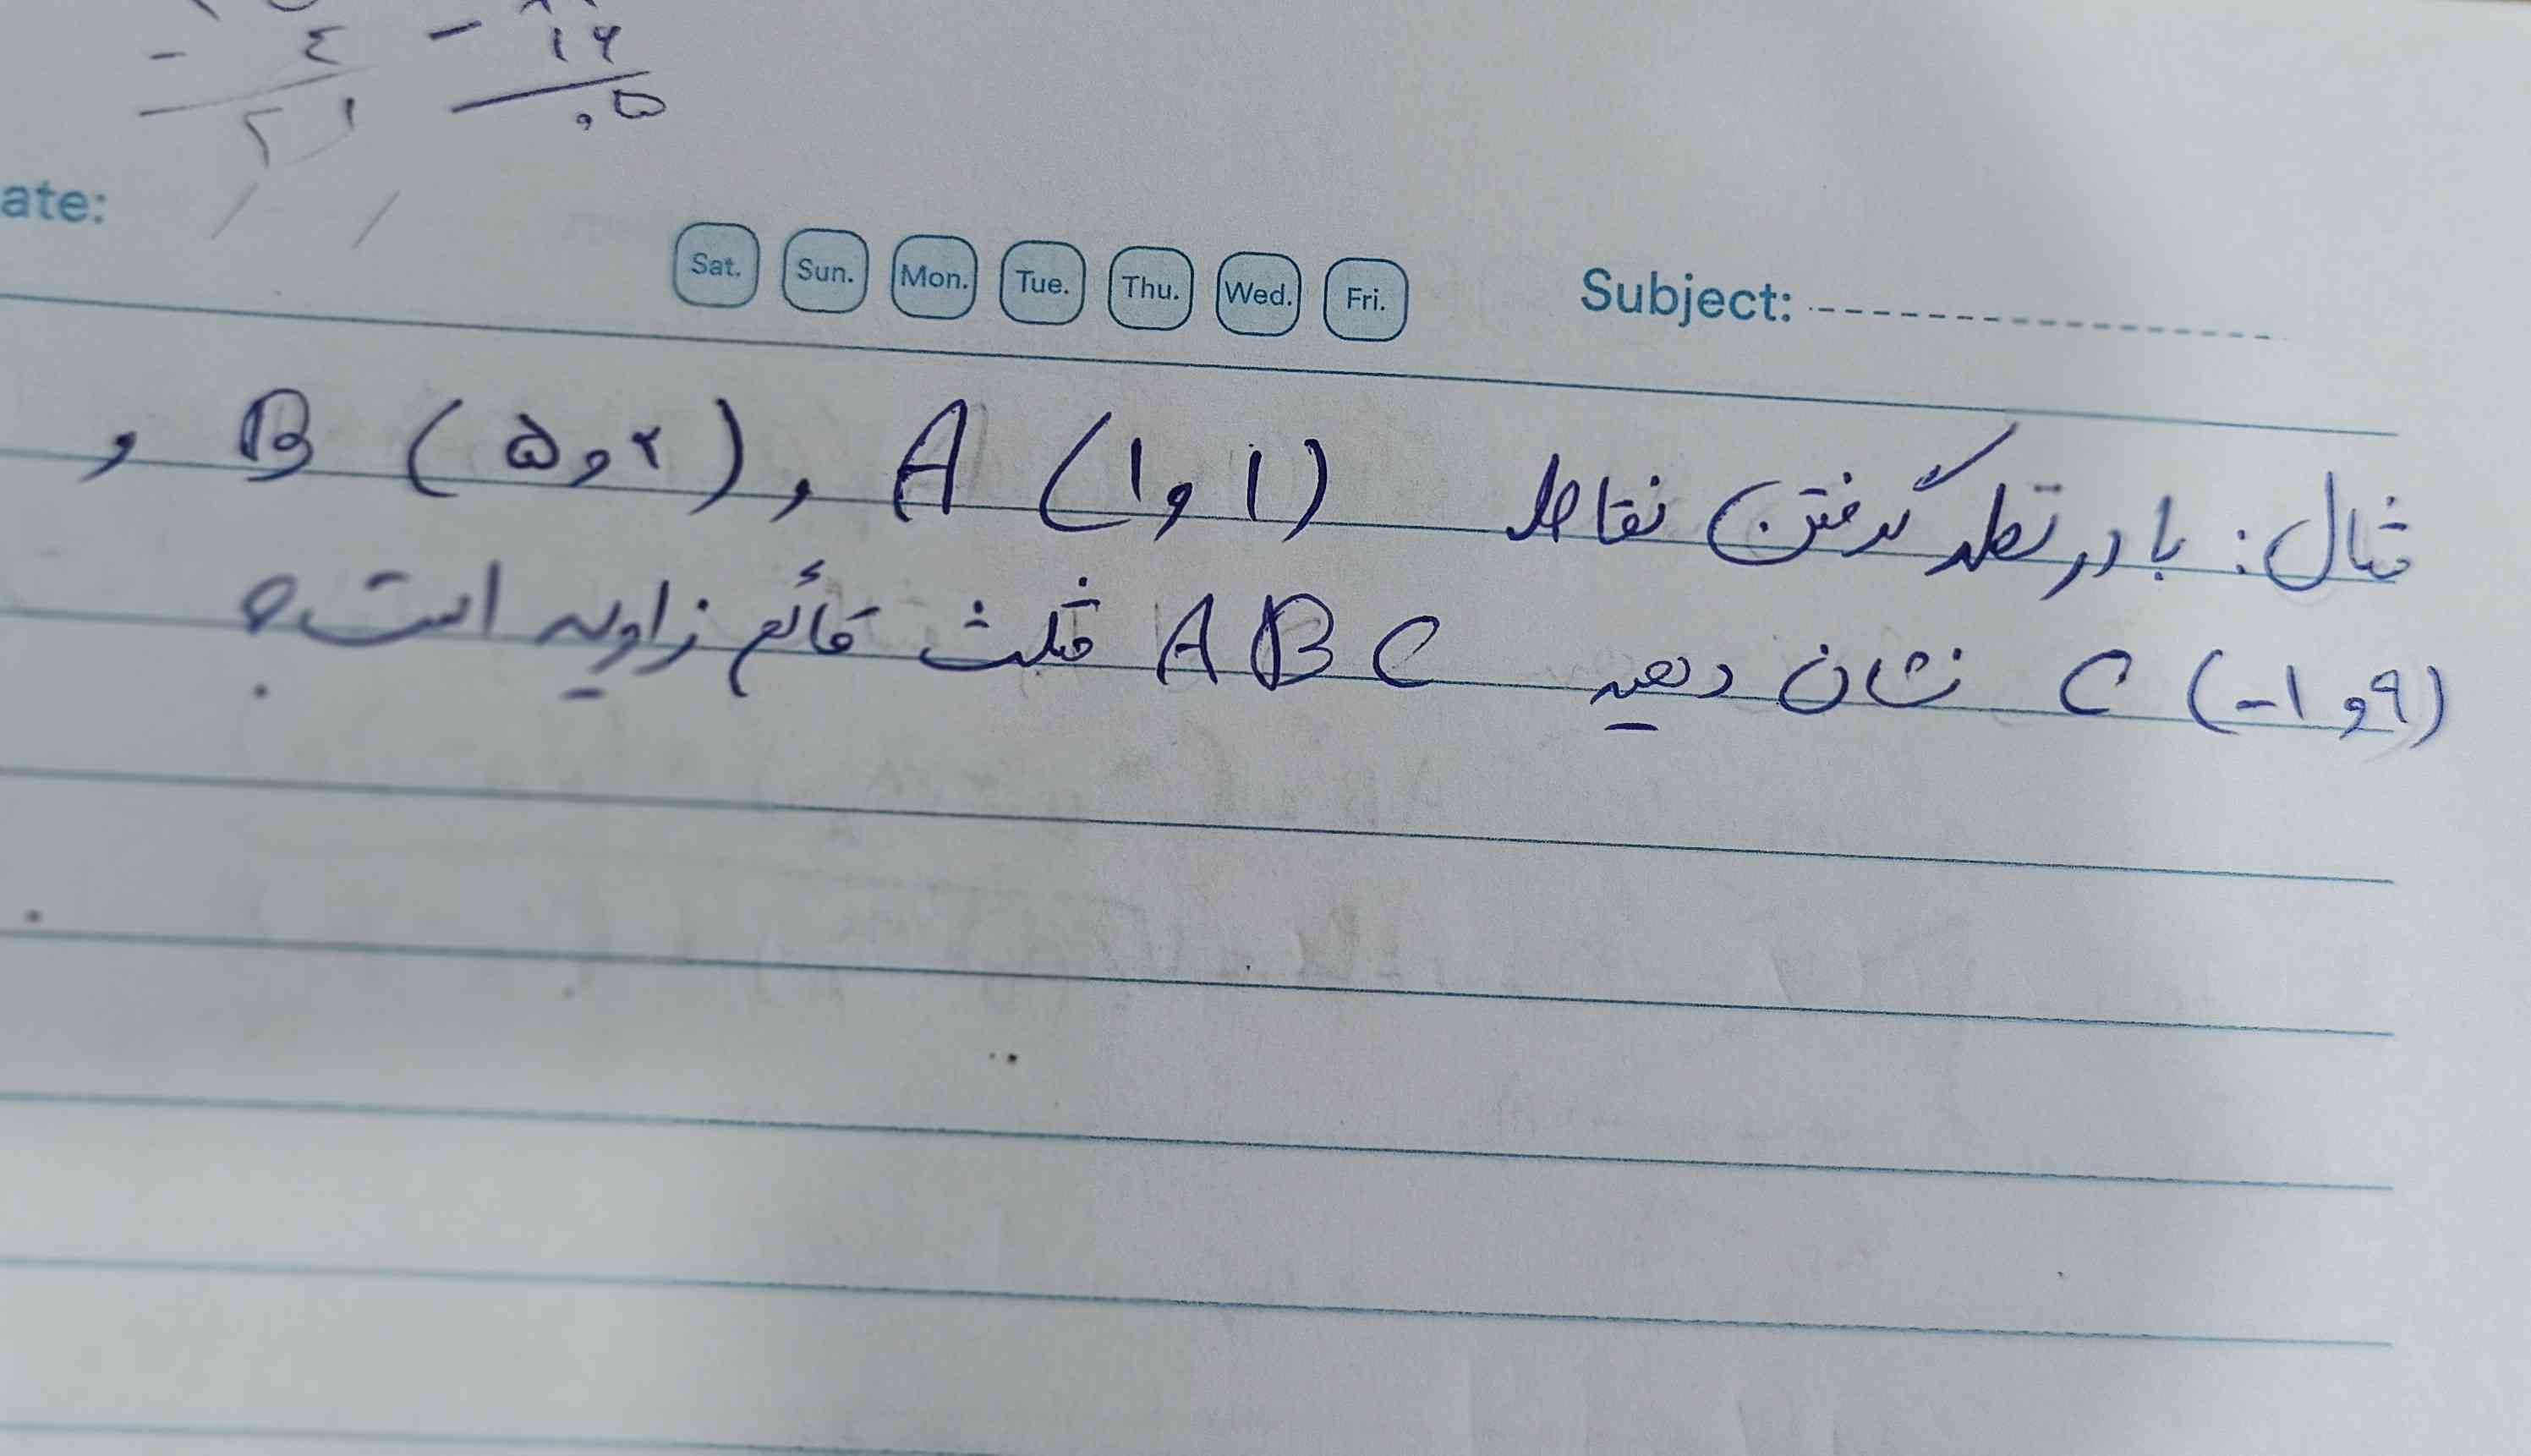 - ٤ - ١٦
٢١ ٠٥
ate: / /
Sat. Sun. Mon. Tue. Thu. Wed. Fri. Subject:
مثال: با در نظر گرفتن نقاط A (١و١) , B (٥و٢) ,
C (-١و٩) نشان دهید ABC مثلث قائم زاویه است؟